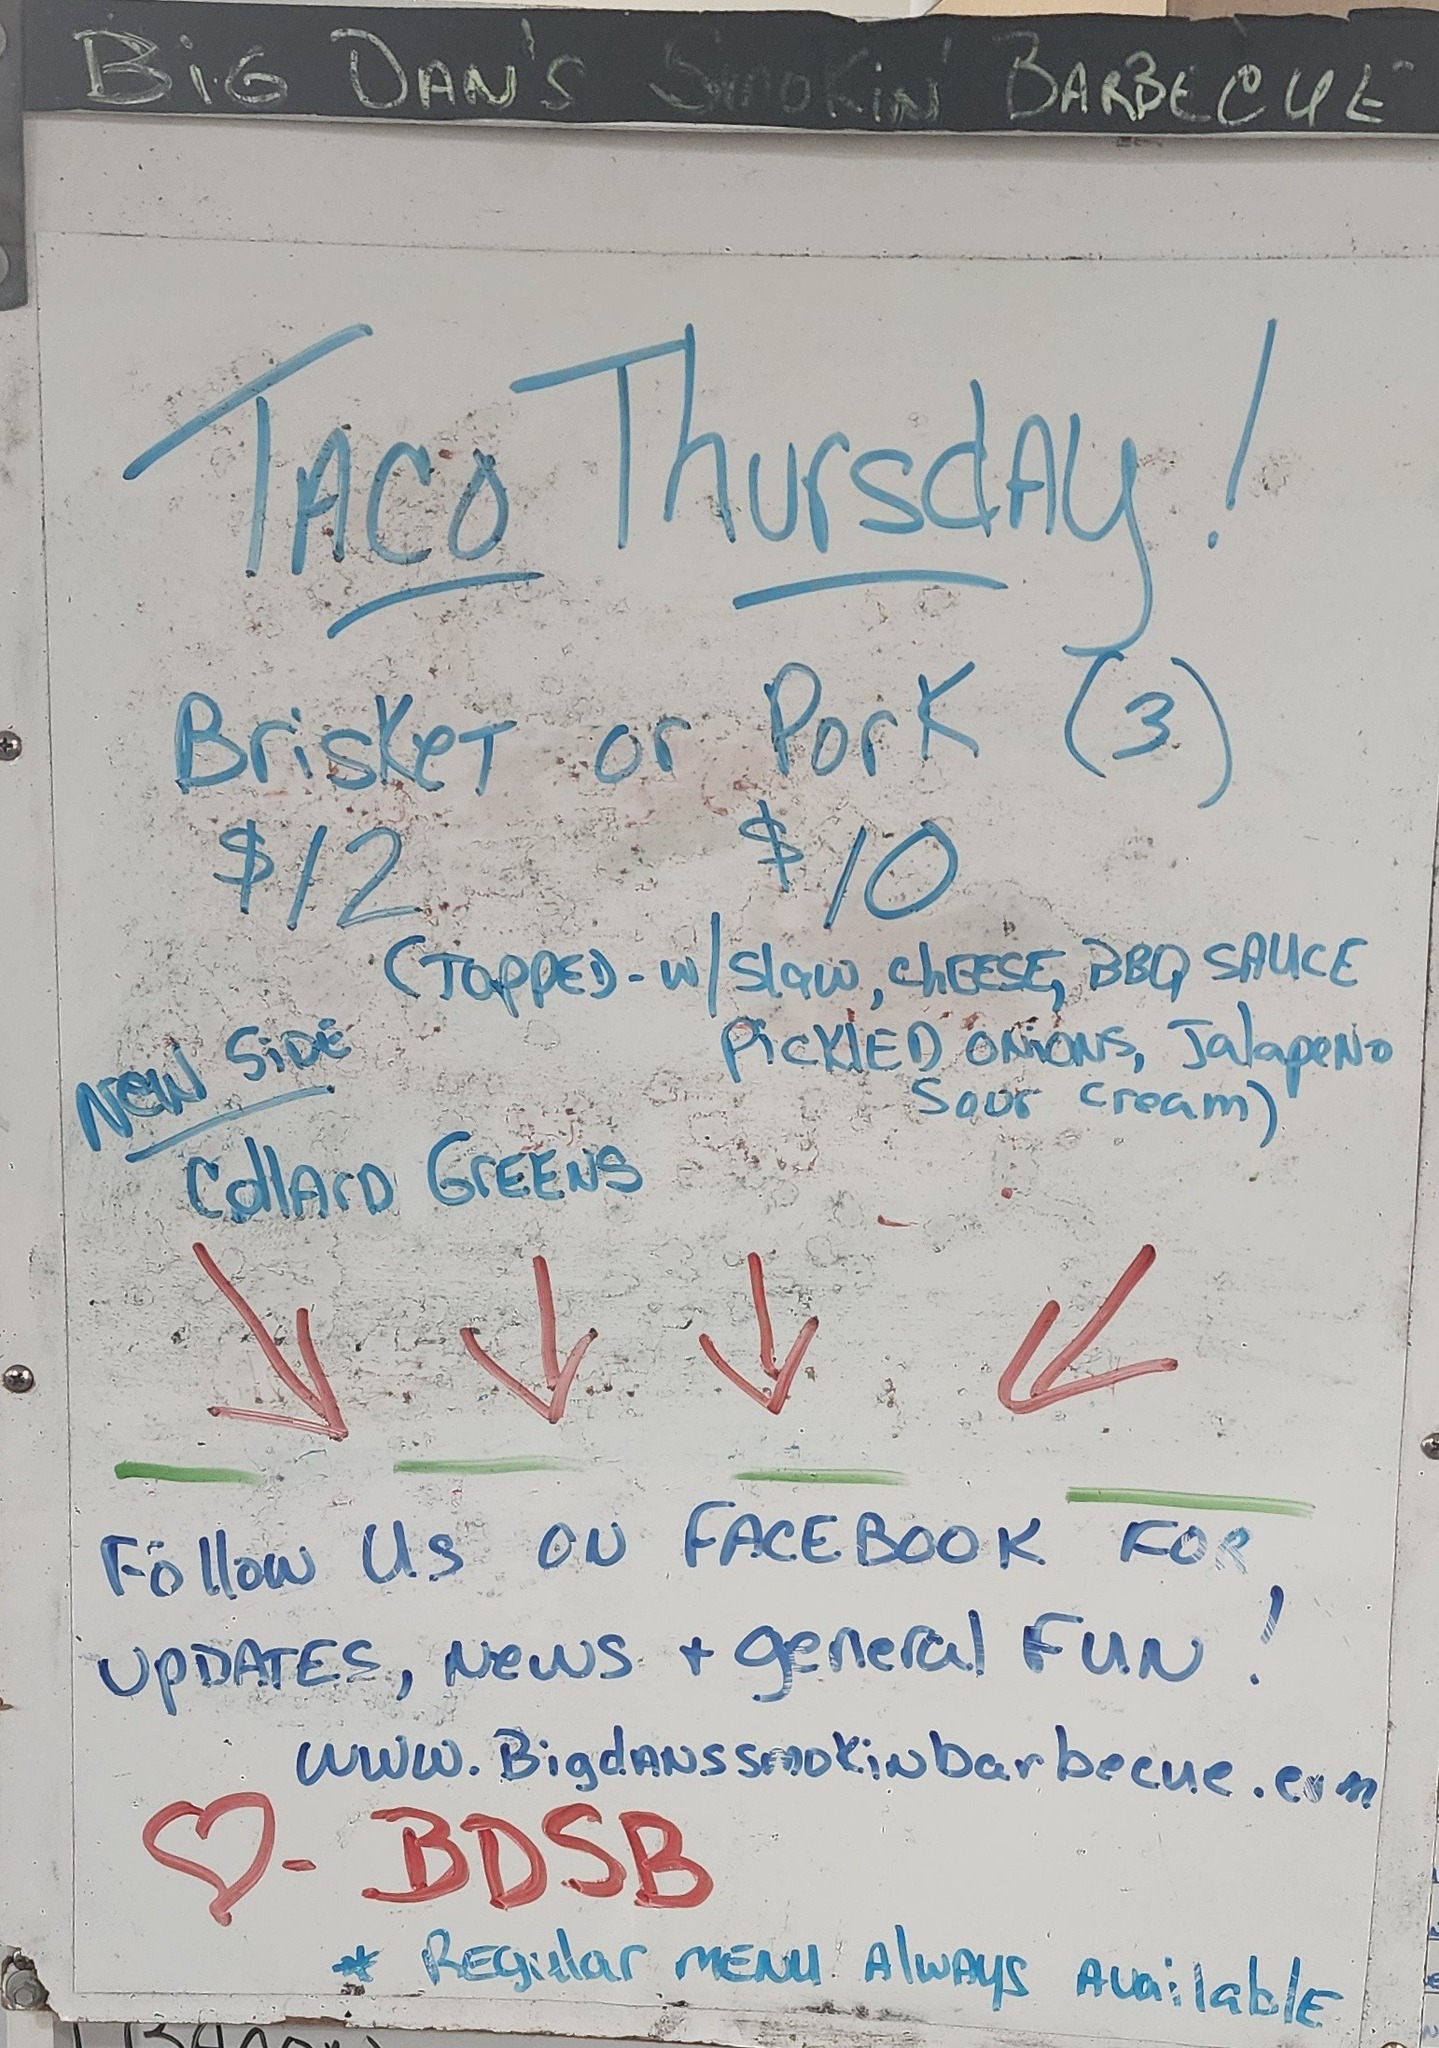 BIG DAN'S SMOKIN' BARBECUE
TACO ThursdAy!
BriskeT or PorK (3)
$12 $10
(TOPPED - w/ slaw, chEESE, BBQ SAUCE
PickLED ONIONS, JalapeNo
Sour cream)
NEW SiDE
CollArD GrEENS
Follow Us ON FACEBOOK FOR
UpDATES, NewS + general FUN!
www.BigdANssmokinbarbecue.com
♡ - BDSB
* REGular MENU AlwAys AvailablE